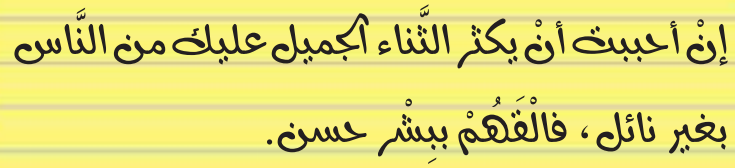 إنْ أحببت أنْ يكثر الثَّناء الجميل عليك من النَّاس
بغير نائل، فالْقَهُمْ ببِشْر حسن.